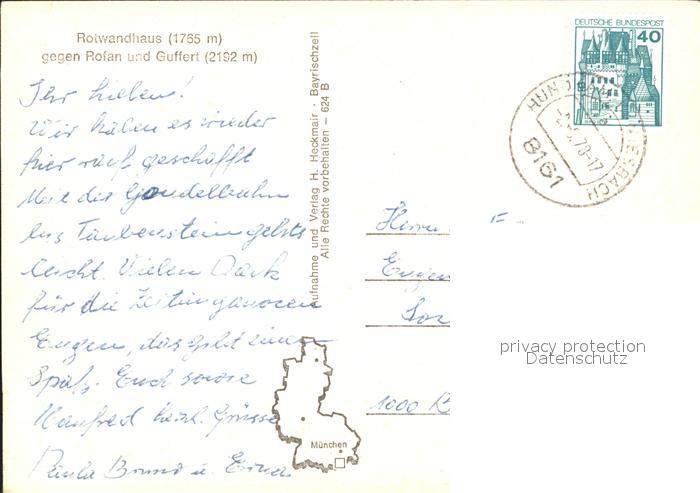 Rotwandhaus (1765 m)
gegen Rofan und Guffert (2192 m)
Ihr Lieben!
Wir haben es wieder
hier rauf geschafft
Mit der Gondelbahn
bis Taubenstein gehts
leicht. Vielen Dank
für die
Eugen, das gibt
Spaß. Euch sowie
Manfred herzl. Grüsse
Paula Bruno u. Erna
Aufnahme und Verlag H. Heckmair · Bayrischzell
Alle Rechte vorbehalten – 624 B
München
DEUTSCHE BUNDESPOST
40
8161
78-17
Herrn
Eugen
1000
privacy protection
Datenschutz